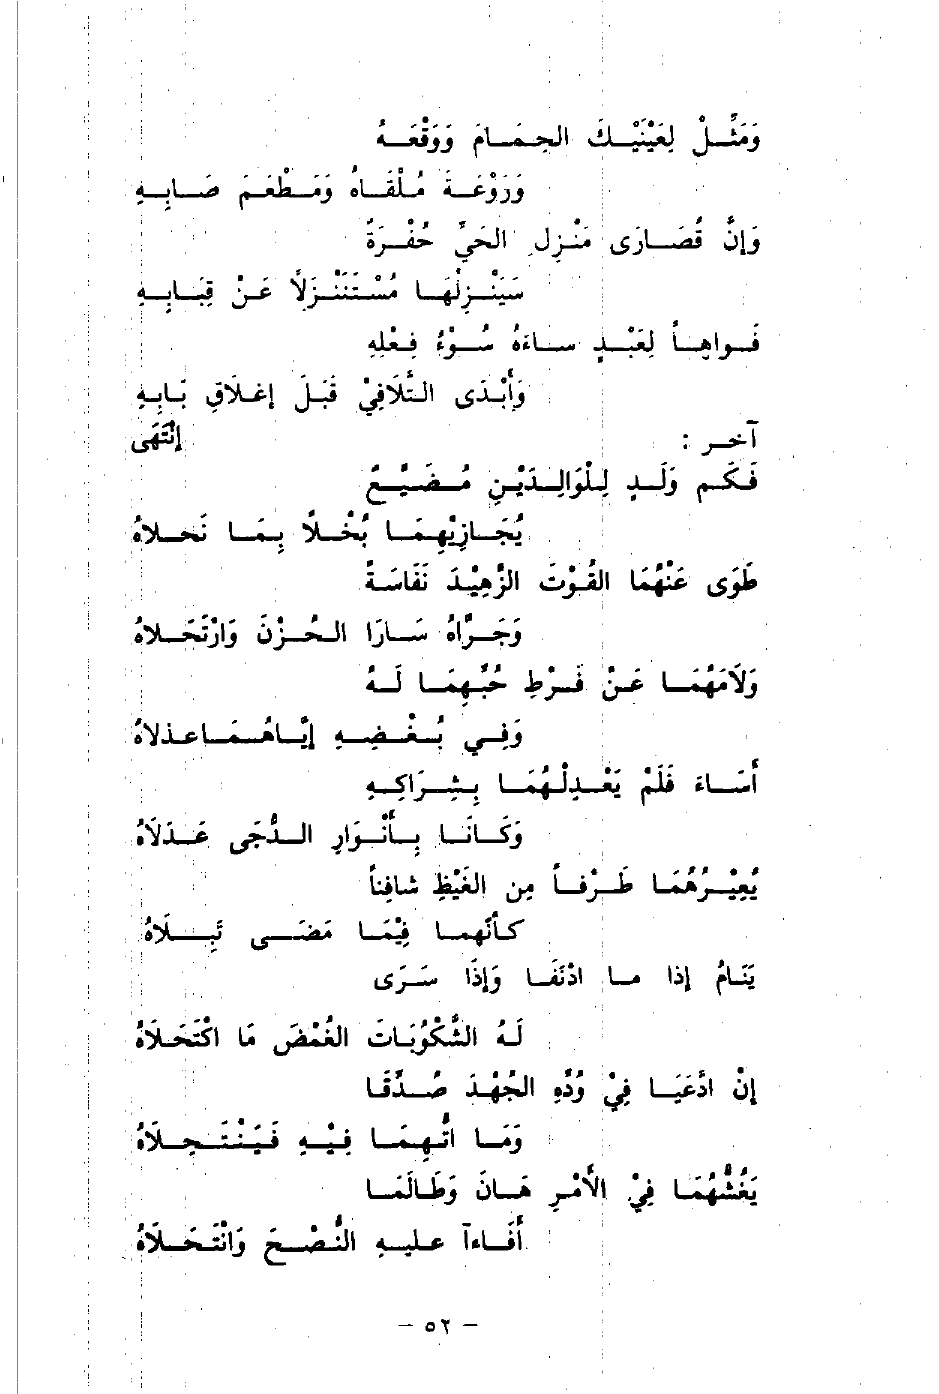 وَمَثِّلْ لِعَيْنَيْكَ الحِمَامَ وَوَقْعَهُ
وَرَوْعَةَ مُلْقَاهُ وَمَطْعَمَ صَابِهِ
وَإِنَّ قُصَارَى مَنْزِلِ الحَيِّ حُفْرَةٌ
سَيَنْزِلُهَا مُسْتَنْزَلاً عَنْ قِبَابِهِ
فَواهِاً لِعَبْدٍ ساءَهُ سُوْءُ فِعْلِهِ
وَأَبْدَى التَّلَافِيْ قَبْلَ إغلَاقِ بَابِهِ
إِنْتَهَى
آخر :
فَكَم وَلَدٍ لِلْوَالِدَيْنِ مُضَيَّعٌ
يُجَازِيْهِمَا بُخْلاً بِمَا نَحلاهُ
طَوَى عَنْهُمَا القُوْتَ الزَّهِيْدَ نَفَاسَةً
وَجَرَّاهُ سَارَا الحُزْنَ وَارْتَحَلاهُ
وَلَامَهُمَا عَنْ فَرْطِ حُبِّهِمَا لَهُ
وَفِي بُغْضِهِ إيَّاهُمَا عذلاهُ
أَسَاءَ فَلَمْ يَعْدِلْهُمَا بِشِرَاكِهِ
وَكَانَا بِأَنْوَارِ الدُّجَى عَدَلَاهُ
يُعِيْرُهُمَا طَرْفاً مِن الغَيْظِ شافِناً
كأنَّهما فِيْمَا مَضَى تَبِلَاهُ
يَنَامُ إذا ما ادْنَفَا وَإِذَا سَرَى
لَهُ الشُّكْوُبَاتَ الغُمْضَ مَا اكْتَحَلَاهُ
إنْ ادَّعَيَا فِيْ وُدِّهِ الجُهْدَ صُدِّقَا
وَمَا اتُّهِمَا فِيْهِ فَيَنْتَحِلَاهُ
يَغُشُّهُمَا فِيْ الأَمْرِ هَانَ وَطَالَمَا
أَفَاءآ عليهِ النُّصْحَ وَانْتَخَلَاهُ
– ٥٢ –